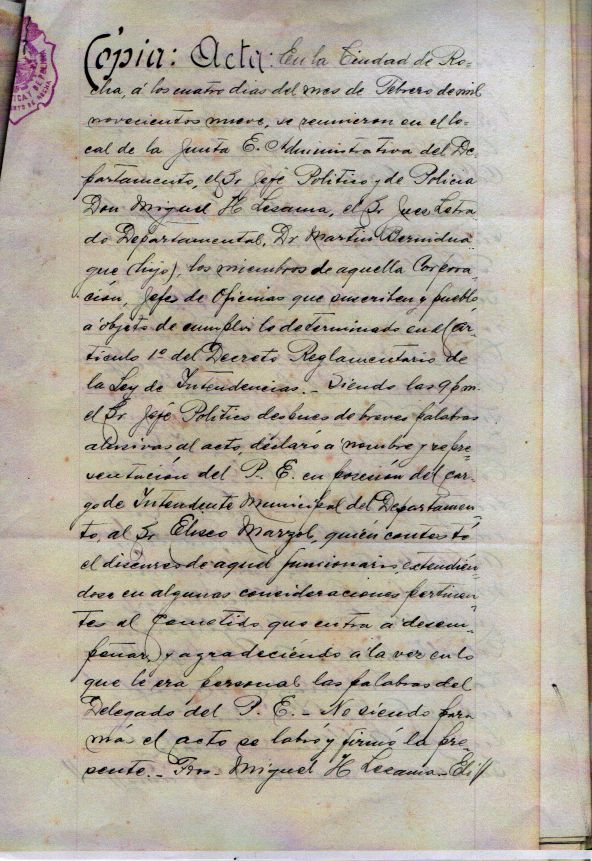 Cópia: Acta: En la Ciudad de Ro-
cha, á los cuatro dias del mes de Febrero de mil
novecientos nueve, se reunieron en el lo-
cal de la Junta E. Administrativa del De-
partamento, el Sr Jefe Politico y de Policia
Don Miguel H Lesama, el Sr Juez Letra
do Departamental, Dr Martin Berindua
que (hijo), los miembros de aquella Corpora
ción, Jefes de Oficinas que suscriben y pueblo
á objeto de cumplir lo determinado en el (ár-
ticulo 1º del Decreto Reglamentario de
la Ley de Intendencias. - Siendo las 9 p.m.
el Sr Jefe Politico despues de breves palabras
alusivas al acto, declaró á nombre y repre-
sentacion del P. E. en posesión del car-
go de Intendente Municipal del Departamen-
to, al Sr Eliseo Marzol, quién contestó
el discurso de aquel funcionario, extendién-
dose en algunas consideraciones pertinen-
tes al cometido que entra á desem-
peñar, y agradeciéndo á la vez en lo
que le era personal las palabras del
Delegado del P. E. - No siendo para
más el acto se labró y firmó la pre-
sente. - Fdo - Miguel H Lesama - Eli//